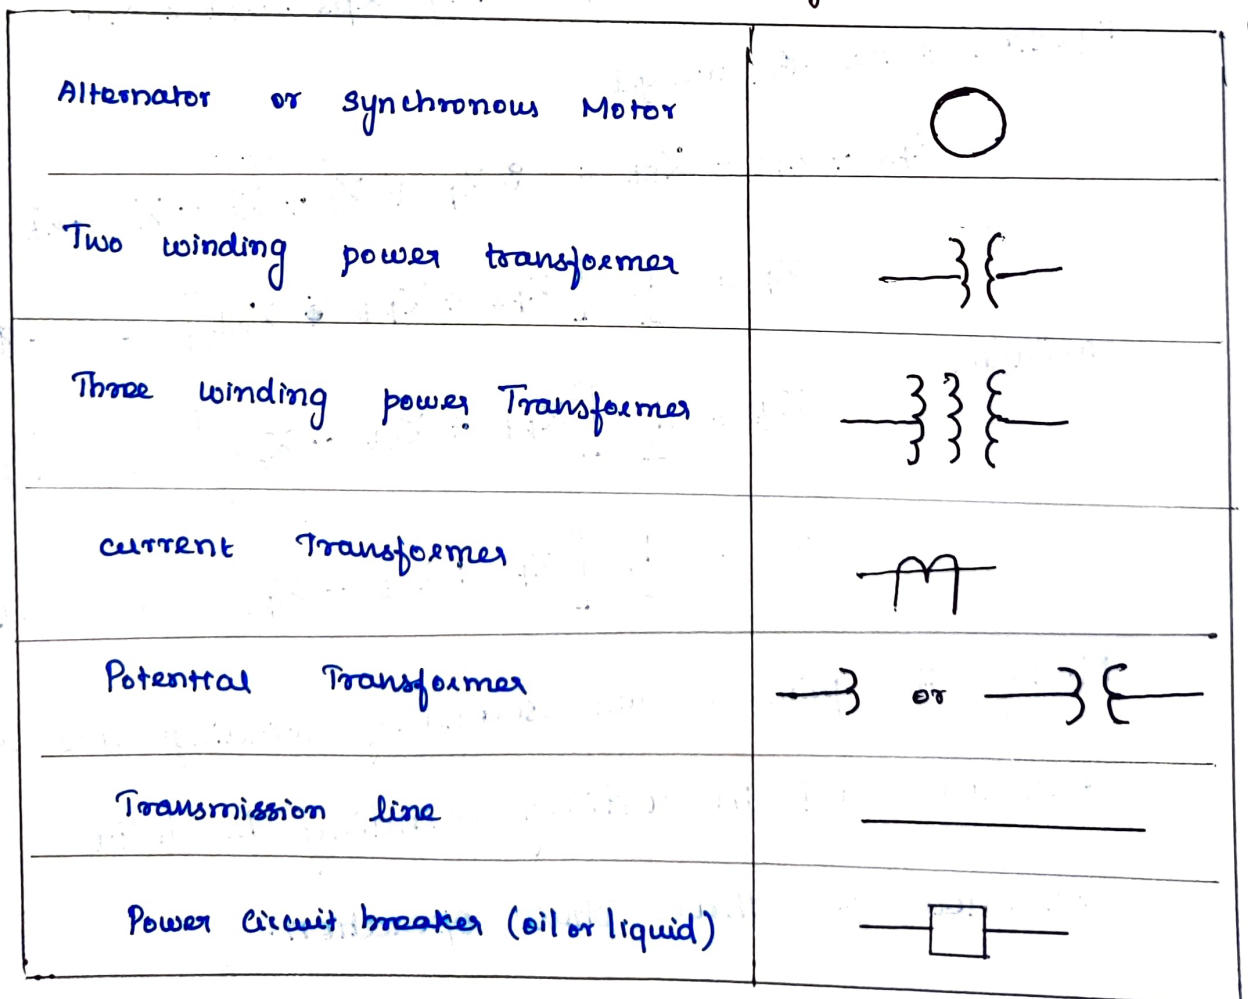 Alternator or Synchronous Motor
Two winding power transformer
Three winding power Transformer
current Transformer
Potential Transformer
or
Transmission line
Power Circuit breaker (oil or liquid)